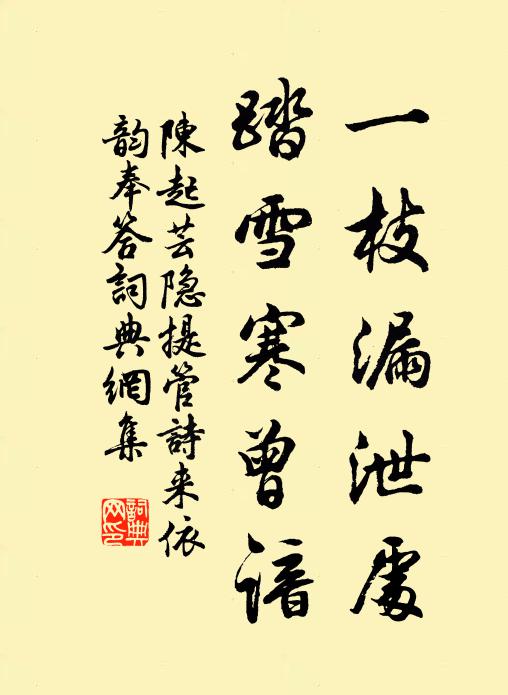 一枝漏泄處
踏雪寒曾谙
陳起芸隐提管詩来依
韵奉答詞典網集
詞典
网印